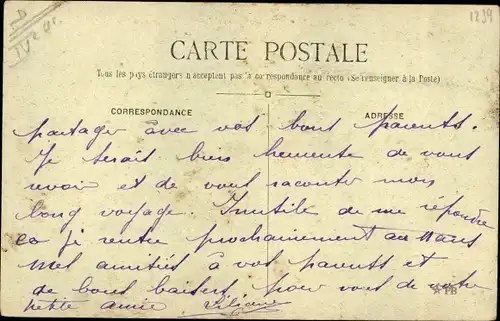 1239
CARTE POSTALE
Tous les pays étrangers n'acceptent pas la correspondance au recto (Se renseigner à la Poste)
CORRESPONDANCE
ADRESSE
partager avec vos bont parents.
Je serait bien heureuse de vous
revoir et de vous raconter mon
long voyage. Inutile de me répondre
ca je rentre prochainement au Mans
Mes amitiés à vos parents et
de bons baisers pour vous de votre
petite amie Liliane